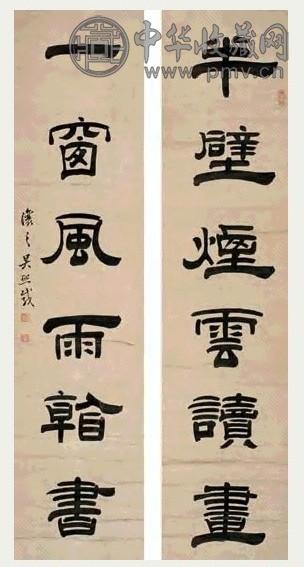 中华收藏网
www.pmv.cn
半壁煙雲讀畫
一窗風雨書
讓之吳熙載